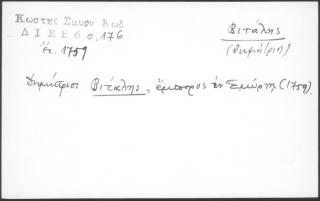 Κωστης Σμυρν Κωδ
Δ Ι Ε Ε 6 σ. 176
ἔτ. 1759
Βιτάλης
(Δημήτριος)
Δημήτριος Βιτάλης, ἔμπορος ἐν Σμύρνῃ (1759).